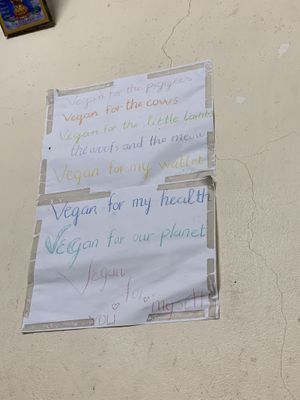 Vegan for the piggies
Vegan for the cows
Vegan for the little lambs
the woofs and the meow
Vegan for my wallet
Vegan for my health
Vegan for our planet
Vegan
for
you myself